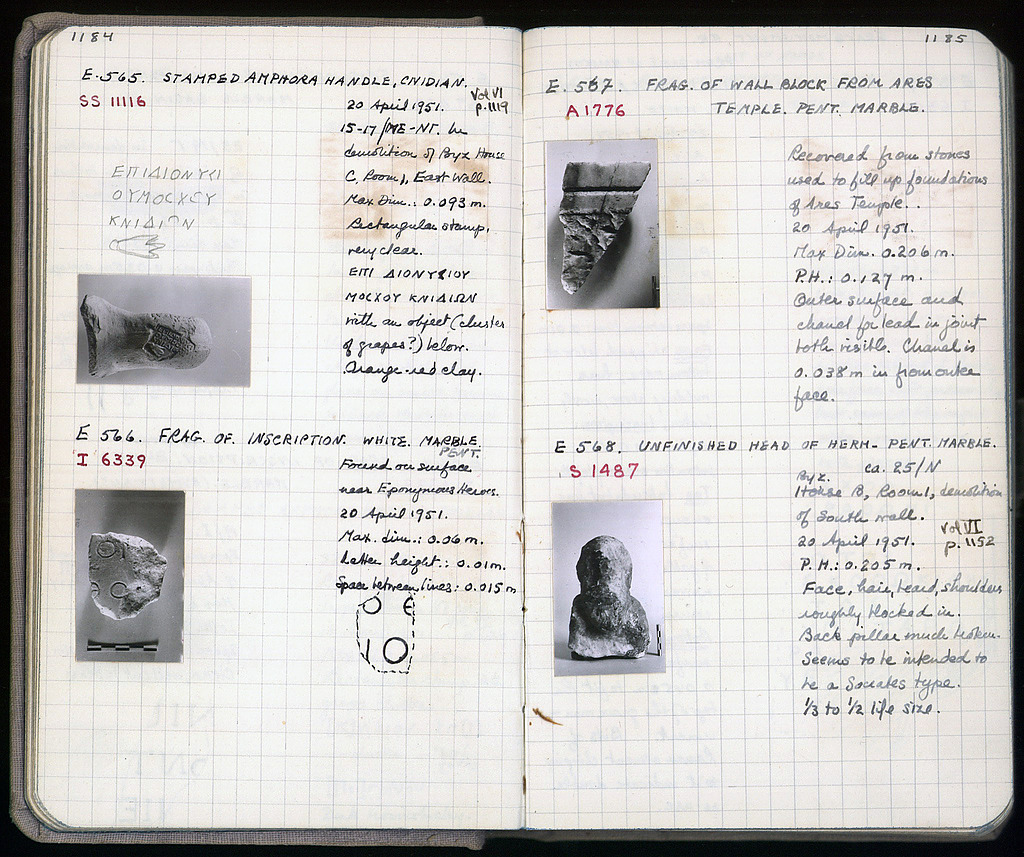 1184
E. 565. STAMPED AMPHORA HANDLE, CNIDIAN.
SS 11116
Vol VI
p. 1119
20 April 1951.
15-17/ME-NT. In
demolition of Byz House
C, Room 1, East Wall.
Max Dim.: 0.093 m.
Rectangular stamp,
very clear.
ΕΠΙ ΔΙΟΝΥΣΙΟΥ
ΜΟΣΧΟΥ ΚΝΙΔΙΩΝ
with an object (cluster
of grapes?) below.
Orange-red clay.
ΕΠΙΔΙΟΝΥΣΙ
ΟΥΜΟΣΧΟΥ
ΚΝΙΔΙΩΝ
E 566. FRAG. OF INSCRIPTION. WHITE MARBLE.
PENT.
I 6339
Found on surface
near Eponymous Heroes.
20 April 1951.
Max. dim.: 0.06 m.
Letter height: 0.01m.
Space between lines: 0.015 m
Ο Ε
Ι Ο
1185
E. 567. FRAG. OF WALL BLOCK FROM ARES
TEMPLE. PENT. MARBLE.
A 1776
Recovered from stones
used to fill up foundations
of Ares Temple.
20 April 1951.
Max Dim. 0.206 m.
P.H.: 0.127 m.
Outer surface and
chanel for lead in joint
both visible. Chanel is
0.038 m in from outer
face.
E 568. UNFINISHED HEAD OF HERM- PENT. MARBLE.
S 1487
ca. 85/N
Byz.
House B, Room 1, demolition
of South wall.
Vol VI
p. 1152
20 April 1951.
P.H.: 0.205 m.
Face, hair, beard, shoulders
roughly blocked in.
Back pillar much broken.
Seems to be intended to
be a Socrates type.
1/3 to 1/2 life size.